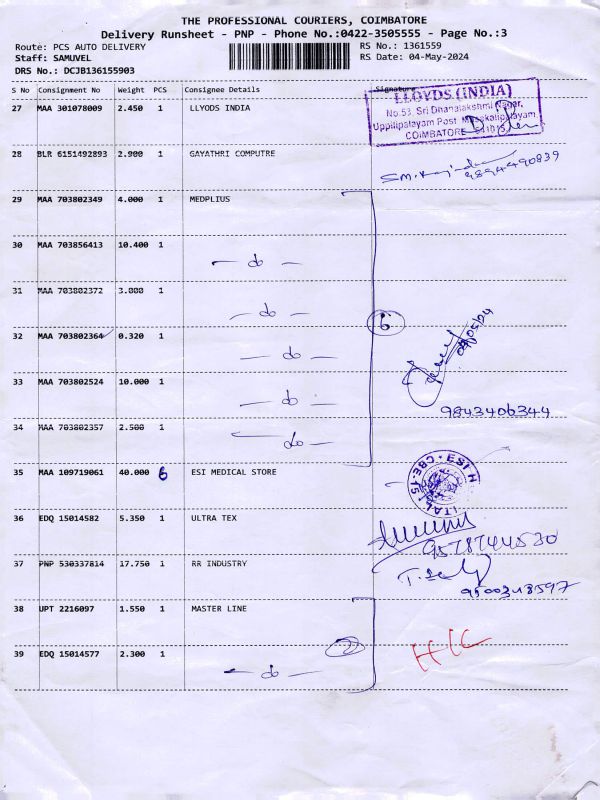 THE PROFESSIONAL COURIERS, COIMBATORE
Delivery Runsheet - PNP - Phone No.:0422-3505555 - Page No.:3
Route: PCS AUTO DELIVERY
RS No.: 1361559
Staff: SAMUVEL
RS Date: 04-May-2024
DRS No.: DCJB136155903
S No Consignment No Weight PCS Consignee Details Signature
27 MAA 301078009 2.450 1 LLYODS INDIA
LLOYDS (INDIA)
No.53, Sri Dhanalakshmi Nagar,
Uppilipalayam Post, Masakalipalayam,
COIMBATORE - 641015
28 BLR 6151492893 2.900 1 GAYATHRI COMPUTRE
9894490839
29 MAA 703802349 4.000 1 MEDPLIUS
30 MAA 703856413 10.400 1 — do —
31 MAA 703802372 3.000 1 — do —
32 MAA 703802364 0.320 1 — do —
6
04/05/24
33 MAA 703802524 10.000 1 — do —
9843406344
34 MAA 703802357 2.500 1 — do —
35 MAA 109719061 40.000 6 ESI MEDICAL STORE
CBE-15 * ESI HOSPITAL
36 EDQ 15014582 5.350 1 ULTRA TEX
9578744530
37 PNP 530337814 17.750 1 RR INDUSTRY
9500348597
38 UPT 2216097 1.550 1 MASTER LINE
2
39 EDQ 15014577 2.300 1 — do —